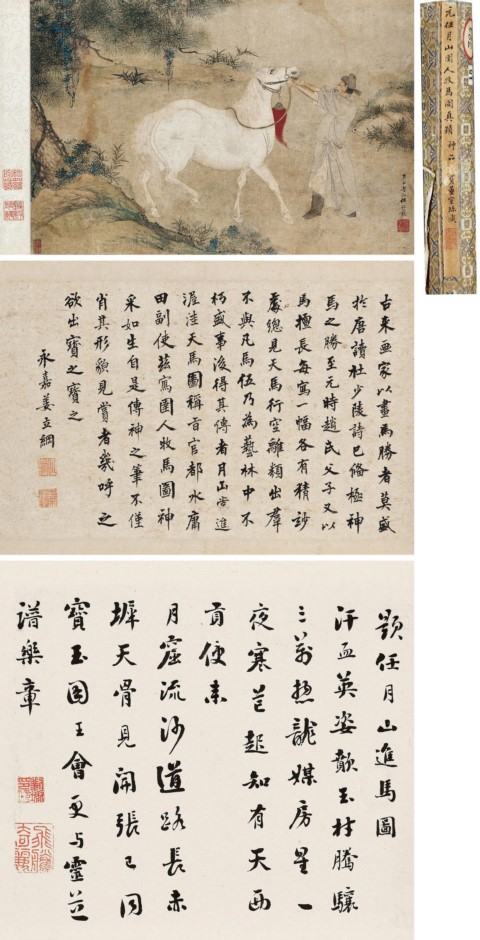 元任月山圉人牧馬圖真蹟
古來画家以畫馬勝者莫盛
於唐讀杜少陵詩已備極神
馬之勝至元時趙氏父子又以
馬擅長每寫一幅各有精妙
處總見天馬行空離類出羣
不與凡馬伍乃為藝林中不
朽盛事後得其傳者月山嘗進
渥洼天馬圖稱旨官都水庸
田副使茲寫圉人牧馬圖神
采如生自是傳神之筆不僅
肖其形貌見賞者幾呼之
欲出寶之寶之
永嘉姜立綱
題任月山進馬圖
汗血英姿歕玉材騰驤
三萬惣龍媒房星一
夜寒芒起知有天西
貢使來
月窟流沙道路長赤
墀天骨見開張已同
寶玉圖王會更与靈芝
譜樂章